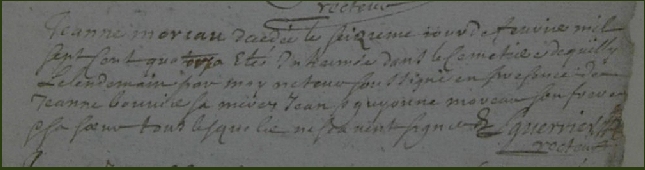 recteur
Jeanne moreau decedee le seizieme jour de feuvrie mil
sept cent quatorze a Esté Inhumée dans le Cemetiere de quilly
Le lendemain par moy recteur soussigné en presence de
Jeanne bourse sa mere Jean guyonne moreau son frere
et sa soeur tous lesquels ne scavent signer guerrier
recteur